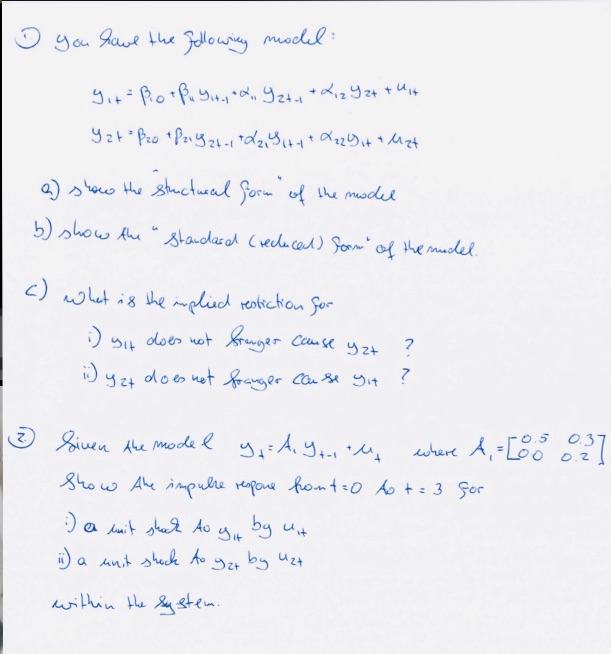 ① you have the following model:
y₁ₜ = β₁₀ + β₁₁ y₁ₜ₋₁ + α₁₁ y₂ₜ₋₁ + α₁₂ y₂ₜ + u₁ₜ
y₂ₜ = β₂₀ + β₂₁ y₂ₜ₋₁ + α₂₁ y₁ₜ₋₁ + α₂₂ y₁ₜ + u₂ₜ
a) show the "structural form" of the model
b) show the "standard (reduced) form" of the model.
c) what is the implied restiction for
i) y₁ₜ does not Granger cause y₂ₜ ?
ii) y₂ₜ does not Granger cause y₁ₜ ?
② Given the model yₜ = A₁ yₜ₋₁ + uₜ where A₁ = [0.5 0.3
0.0 0.2]
Show the impulse respone from t=0 to t=3 for
i) a unit shock to y₁ₜ by u₁ₜ
ii) a unit shock to y₂ₜ by u₂ₜ
within the system.